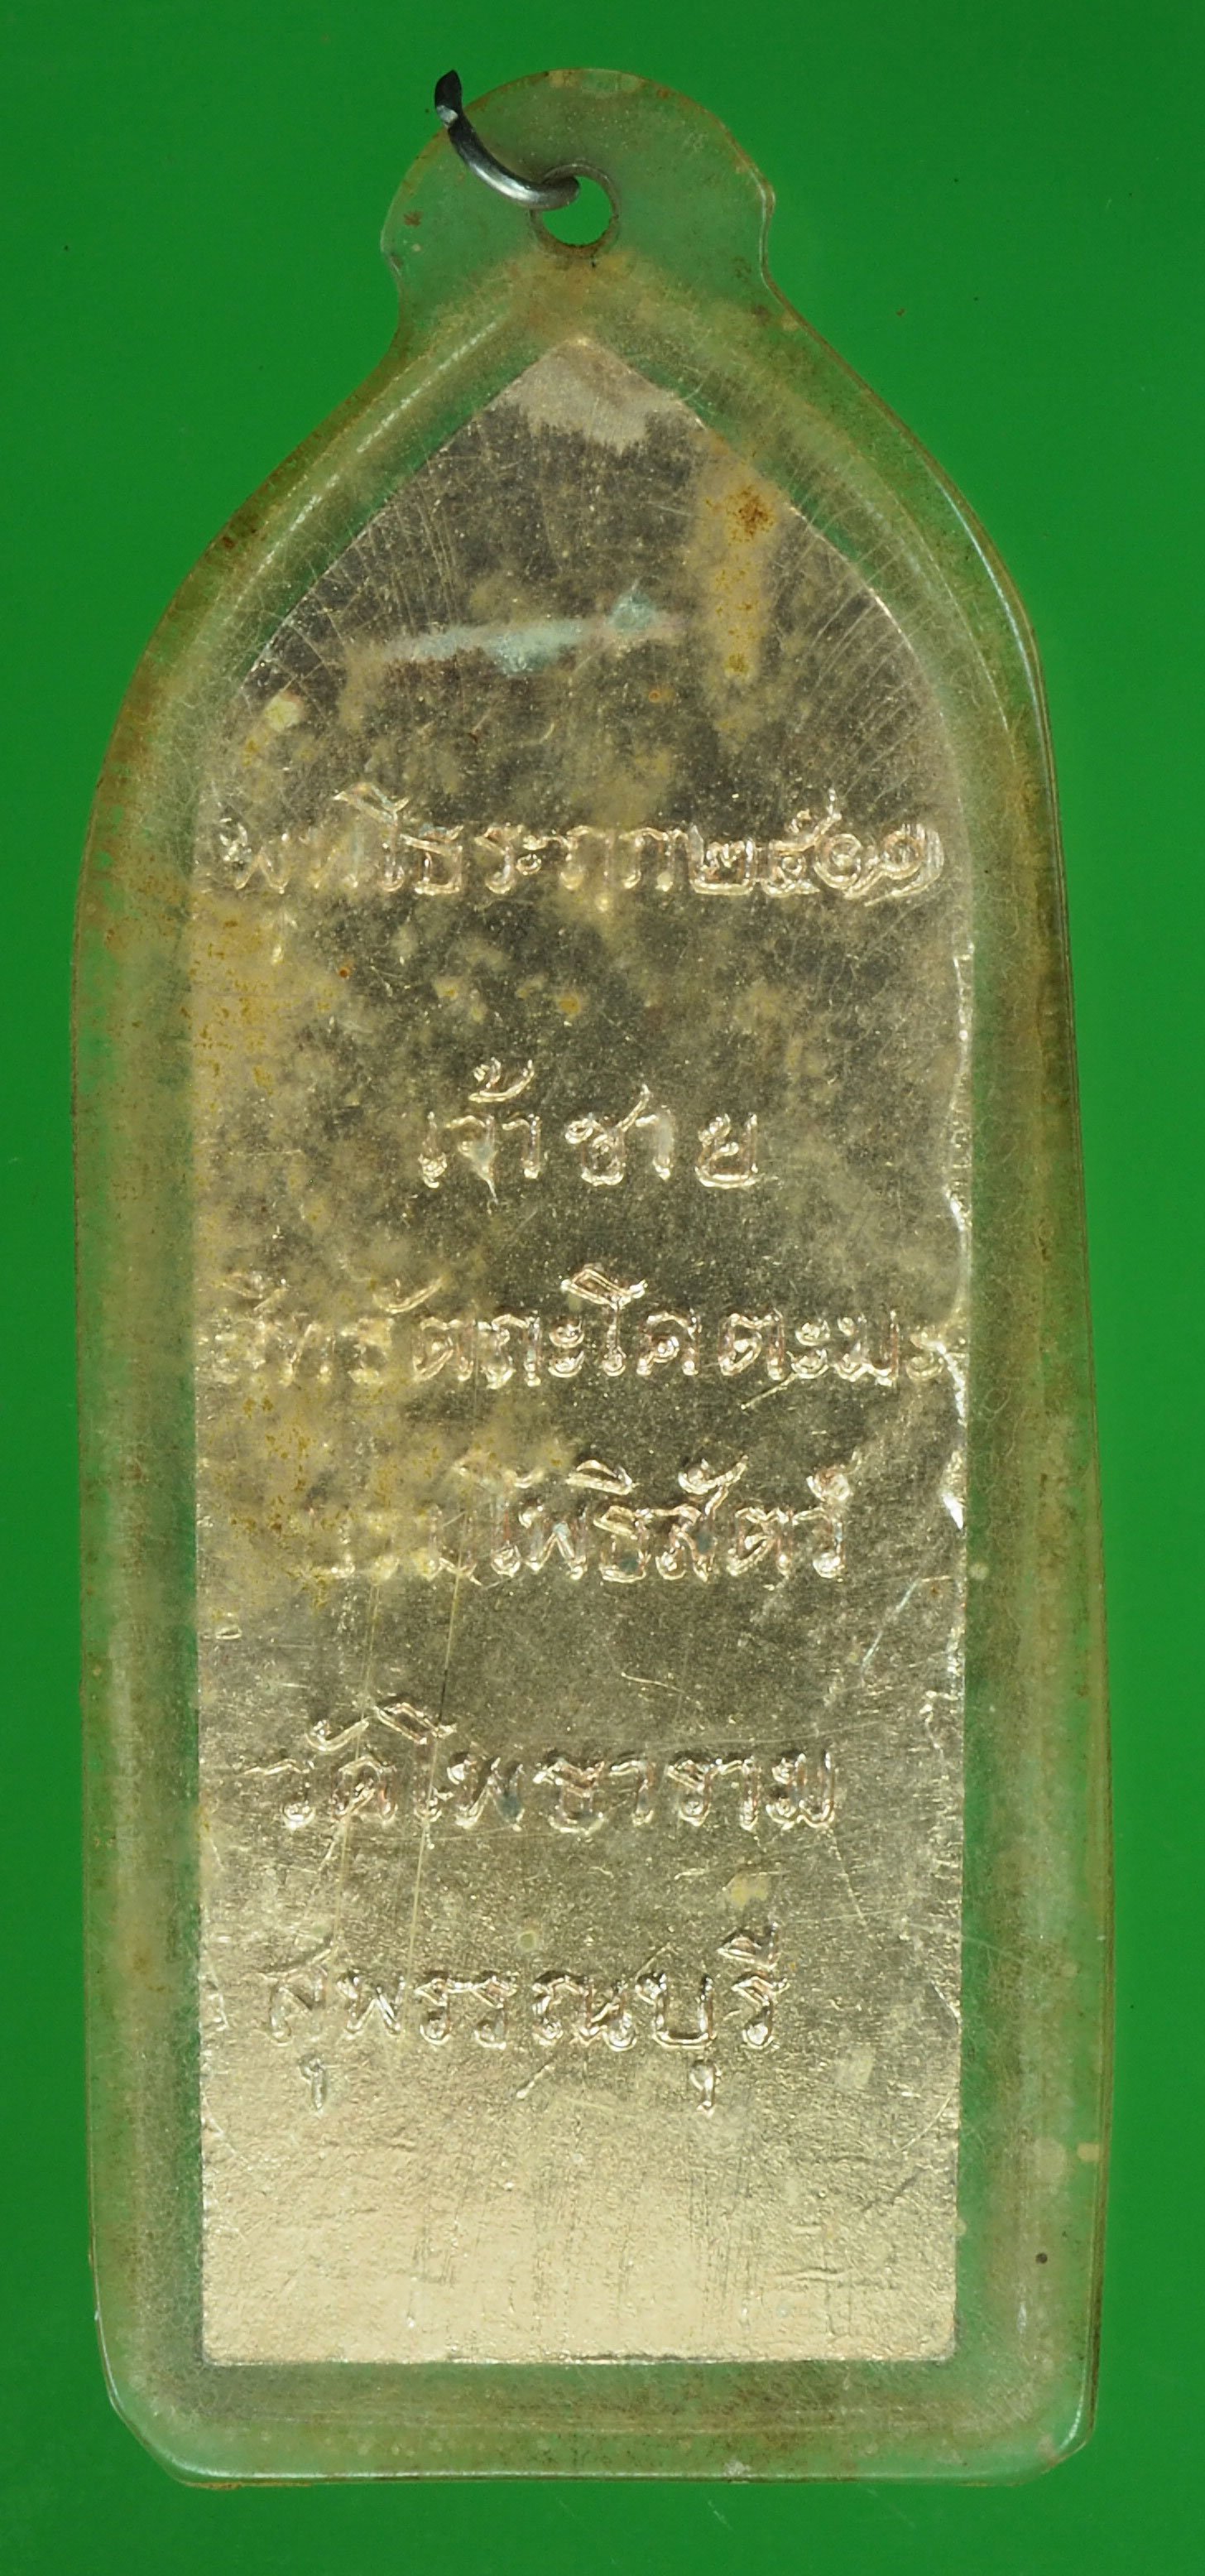 พุทโธระฤก๒๕๑๑
เจ้าชาย
สิทธัตถะโคตะมะ
โพธิสัตว์
วัดโพธาราม
สุพรรณบุรี